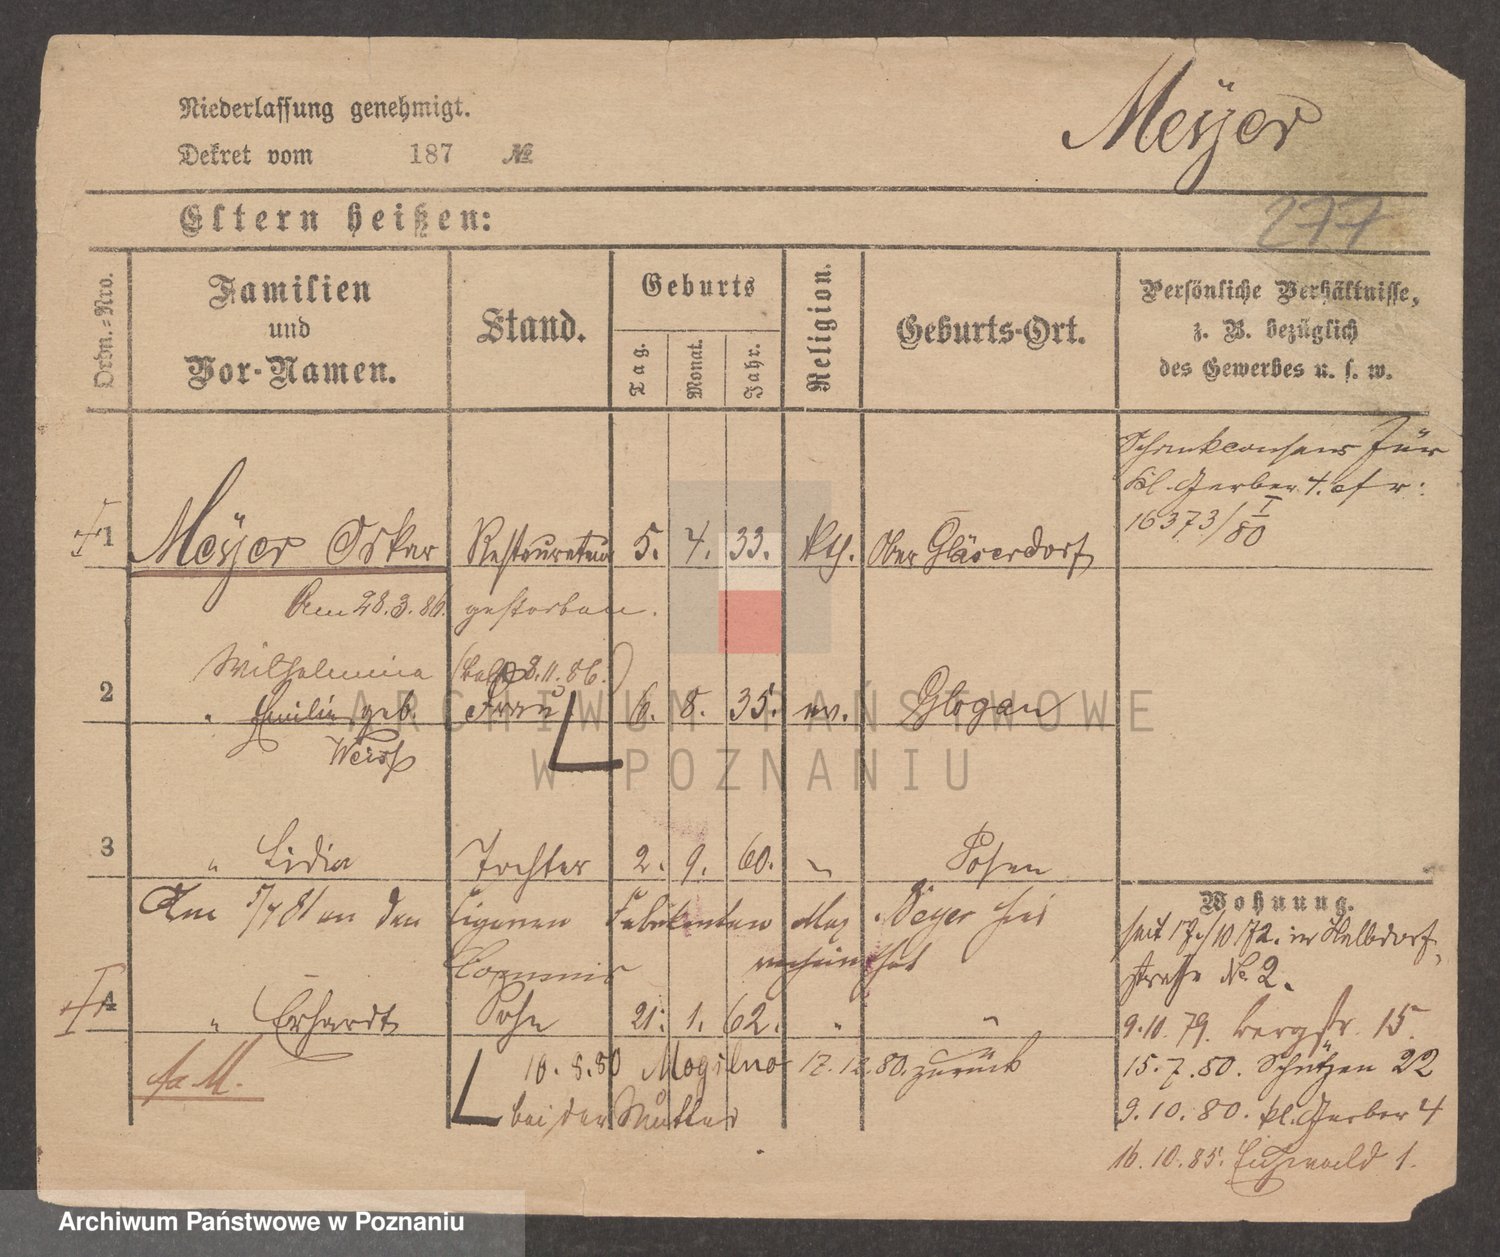 Niederlassung genehmigt.
Meyer
Dekret vom 187 №
Eltern heißen:
277
Ordn.=Nro.
Familien
und
Vor-Namen.
Stand.
Geburts
Tag.
Monat.
Jahr.
Religion.
Geburts-Ort.
Persönliche Verhältnisse,
z. B. bezüglich
des Gewerbes u. s. w.
Schankconsens für
kl. Gerber. 4. cfr:
16373/I 80
1 Meyer Oskar Restaurateur 5. 4. 33. kth. Ober Gläserdorf
Am 28.3.86. gestorben.
Wilhelmina 8.11.86.
2 " Emilie geb Frau 6. 8. 35. ev. Glogau
Weiss
3 " Lidia Tochter 2. 9. 60. " Posen
Am 5/7 81 an den Cigarren Fabrikanten Max Meyer
Commis verheirathet
4 " Erhardt Sohn 21. 1. 62. " "
10.8.80 Mogilno 17.12.80. zurück
bei der Mutter
Wohnung.
seit 17/10 72. in Halbdorf
strasse No. 2.
9.10.79. Bergstr. 15.
15.7.80. Schützen 22
9.10.80. kl. Gerber 4
16.10.85. Eichwald 1.
ARCHIWUM PAŃSTWOWE
W POZNANIU
Archiwum Państwowe w Poznaniu